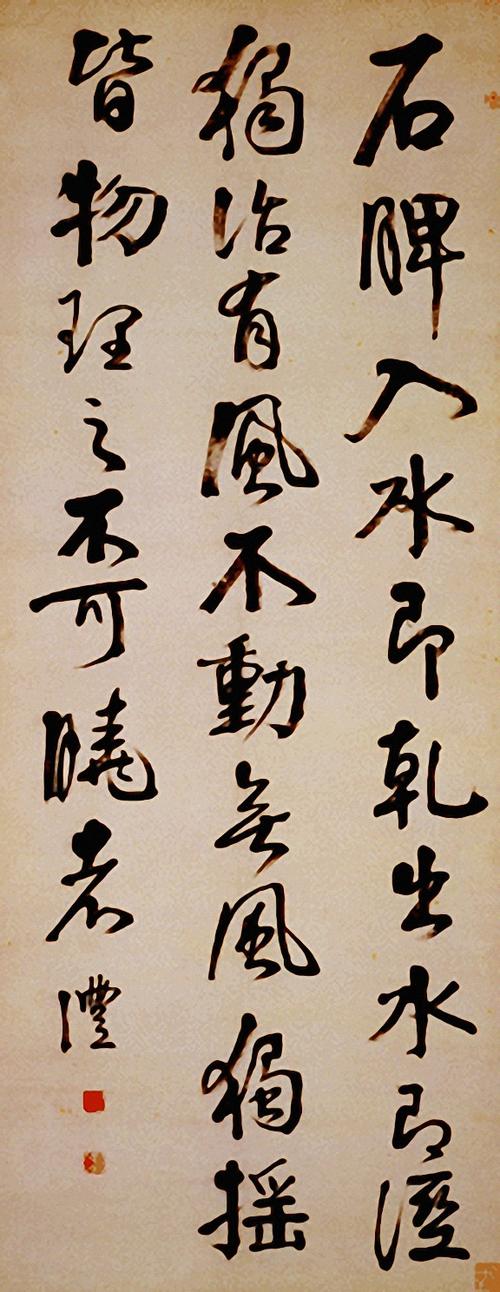 石脾入水即乾出水即溼
獨活有風不動無風獨摇
皆物理之不可曉者澧